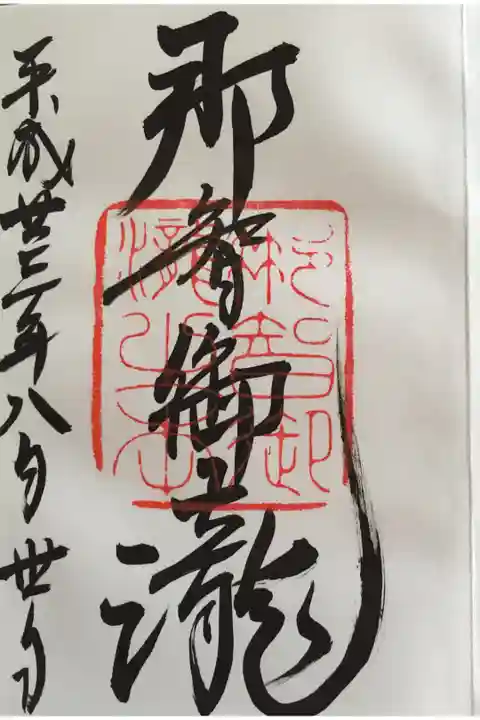 那智御瀧
平成廿三年八月丗日